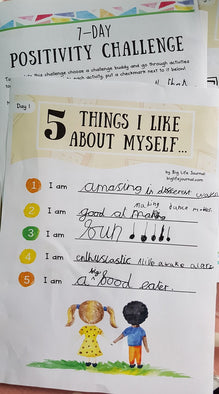 7-DAY
POSITIVITY CHALLENGE
this challenge choose a challenge buddy and go through activities
each activity, put a checkmark next to it below!
Day 1
5 THINGS I LIKE
ABOUT MYSELF...
by Big Life Journal
biglifejournal.com
1 I am amasing in different
2 I am good at making making dance
3 I am fun
4 I am enthusiastic alive awake alert
5 I am a good eater.